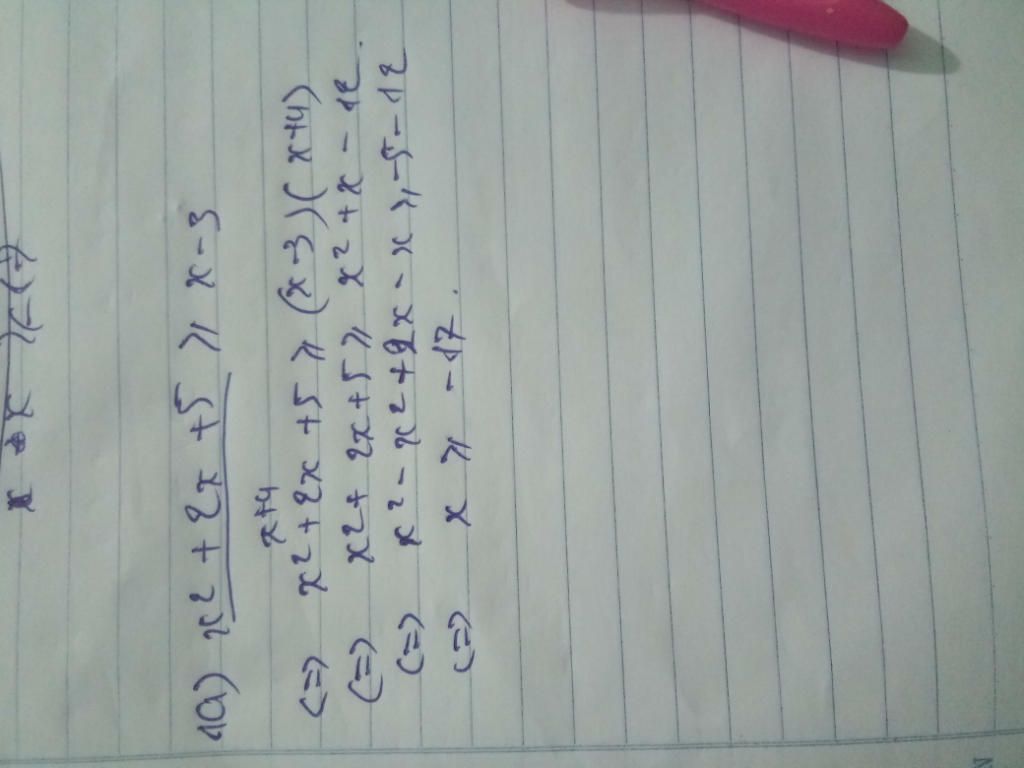 10a) x² + 2x + 5 ⩾ x - 3
x+4
<=> x² + 2x + 5 ⩾ (x - 3)(x+4)
<=> x² + 2x + 5 ⩾ x² + x - 12.
<=> x² - x² + 2x - x ⩾ -5 - 12
<=> x ⩾ -17.